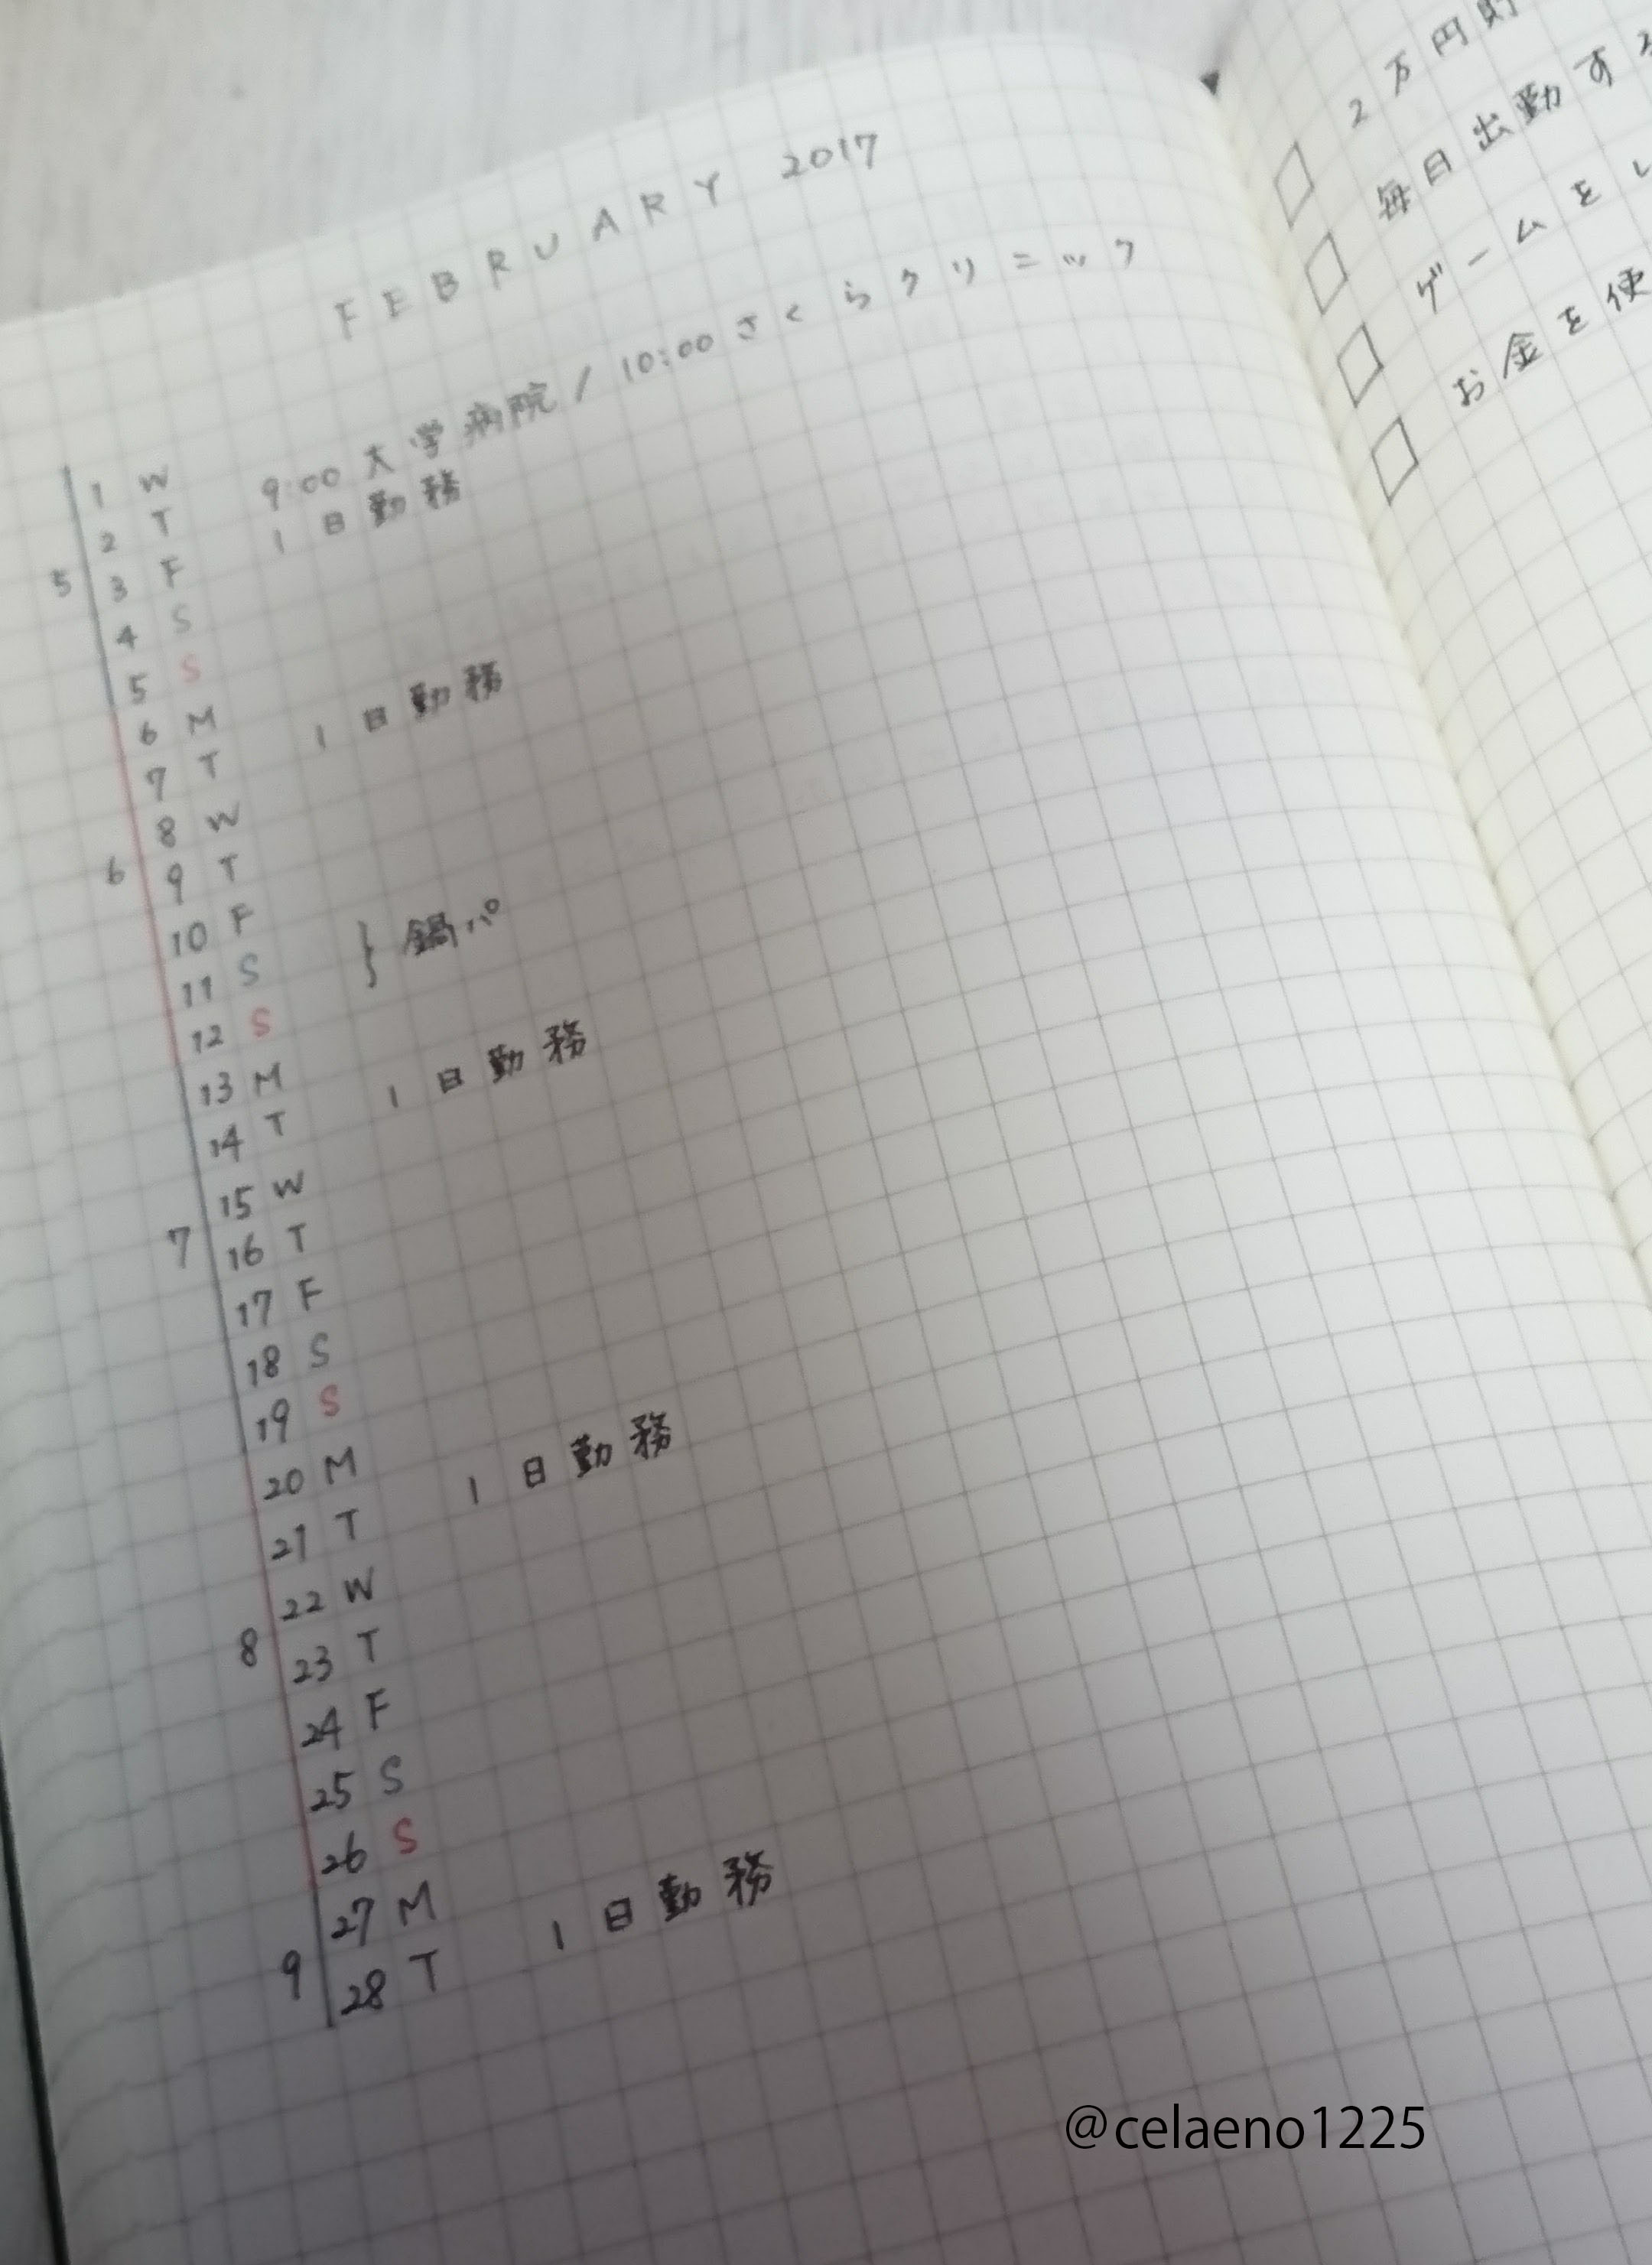 FEBRUARY 2017
1 W
2 T 9:00 大学病院 / 10:00 さくらクリニック
5 3 F 1日勤務
4 S
5 S
6 M
7 T 1日勤務
8 W
6 9 T
10 F
11 S } 鍋パ
12 S
13 M
14 T 1日勤務
15 W
7 16 T
17 F
18 S
19 S
20 M
21 T 1日勤務
22 W
8 23 T
24 F
25 S
26 S
27 M
9 28 T 1日勤務
□ 2万円貯
□ 毎日出勤する
□ ゲームをし
□ お金を使
@celaeno1225